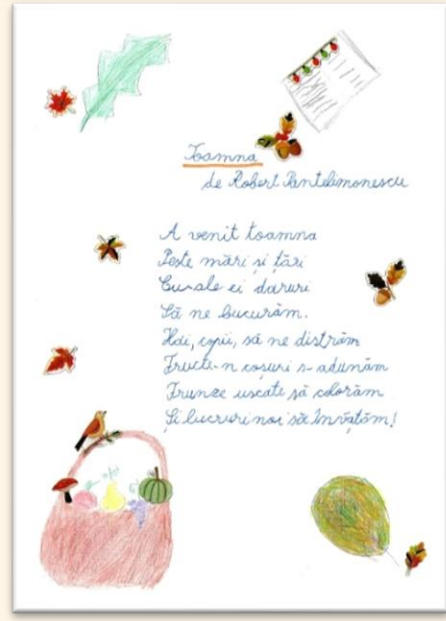 Toamna
de Robert Pantelimonescu
A venit toamna
Peste mări și țări
Cu-ale ei daruri
Să ne bucurăm.
Hai, copii, să ne distrăm
Fructe-n coșuri s-adunăm
Frunze uscate să colorăm
Și lucruri noi să învățăm!